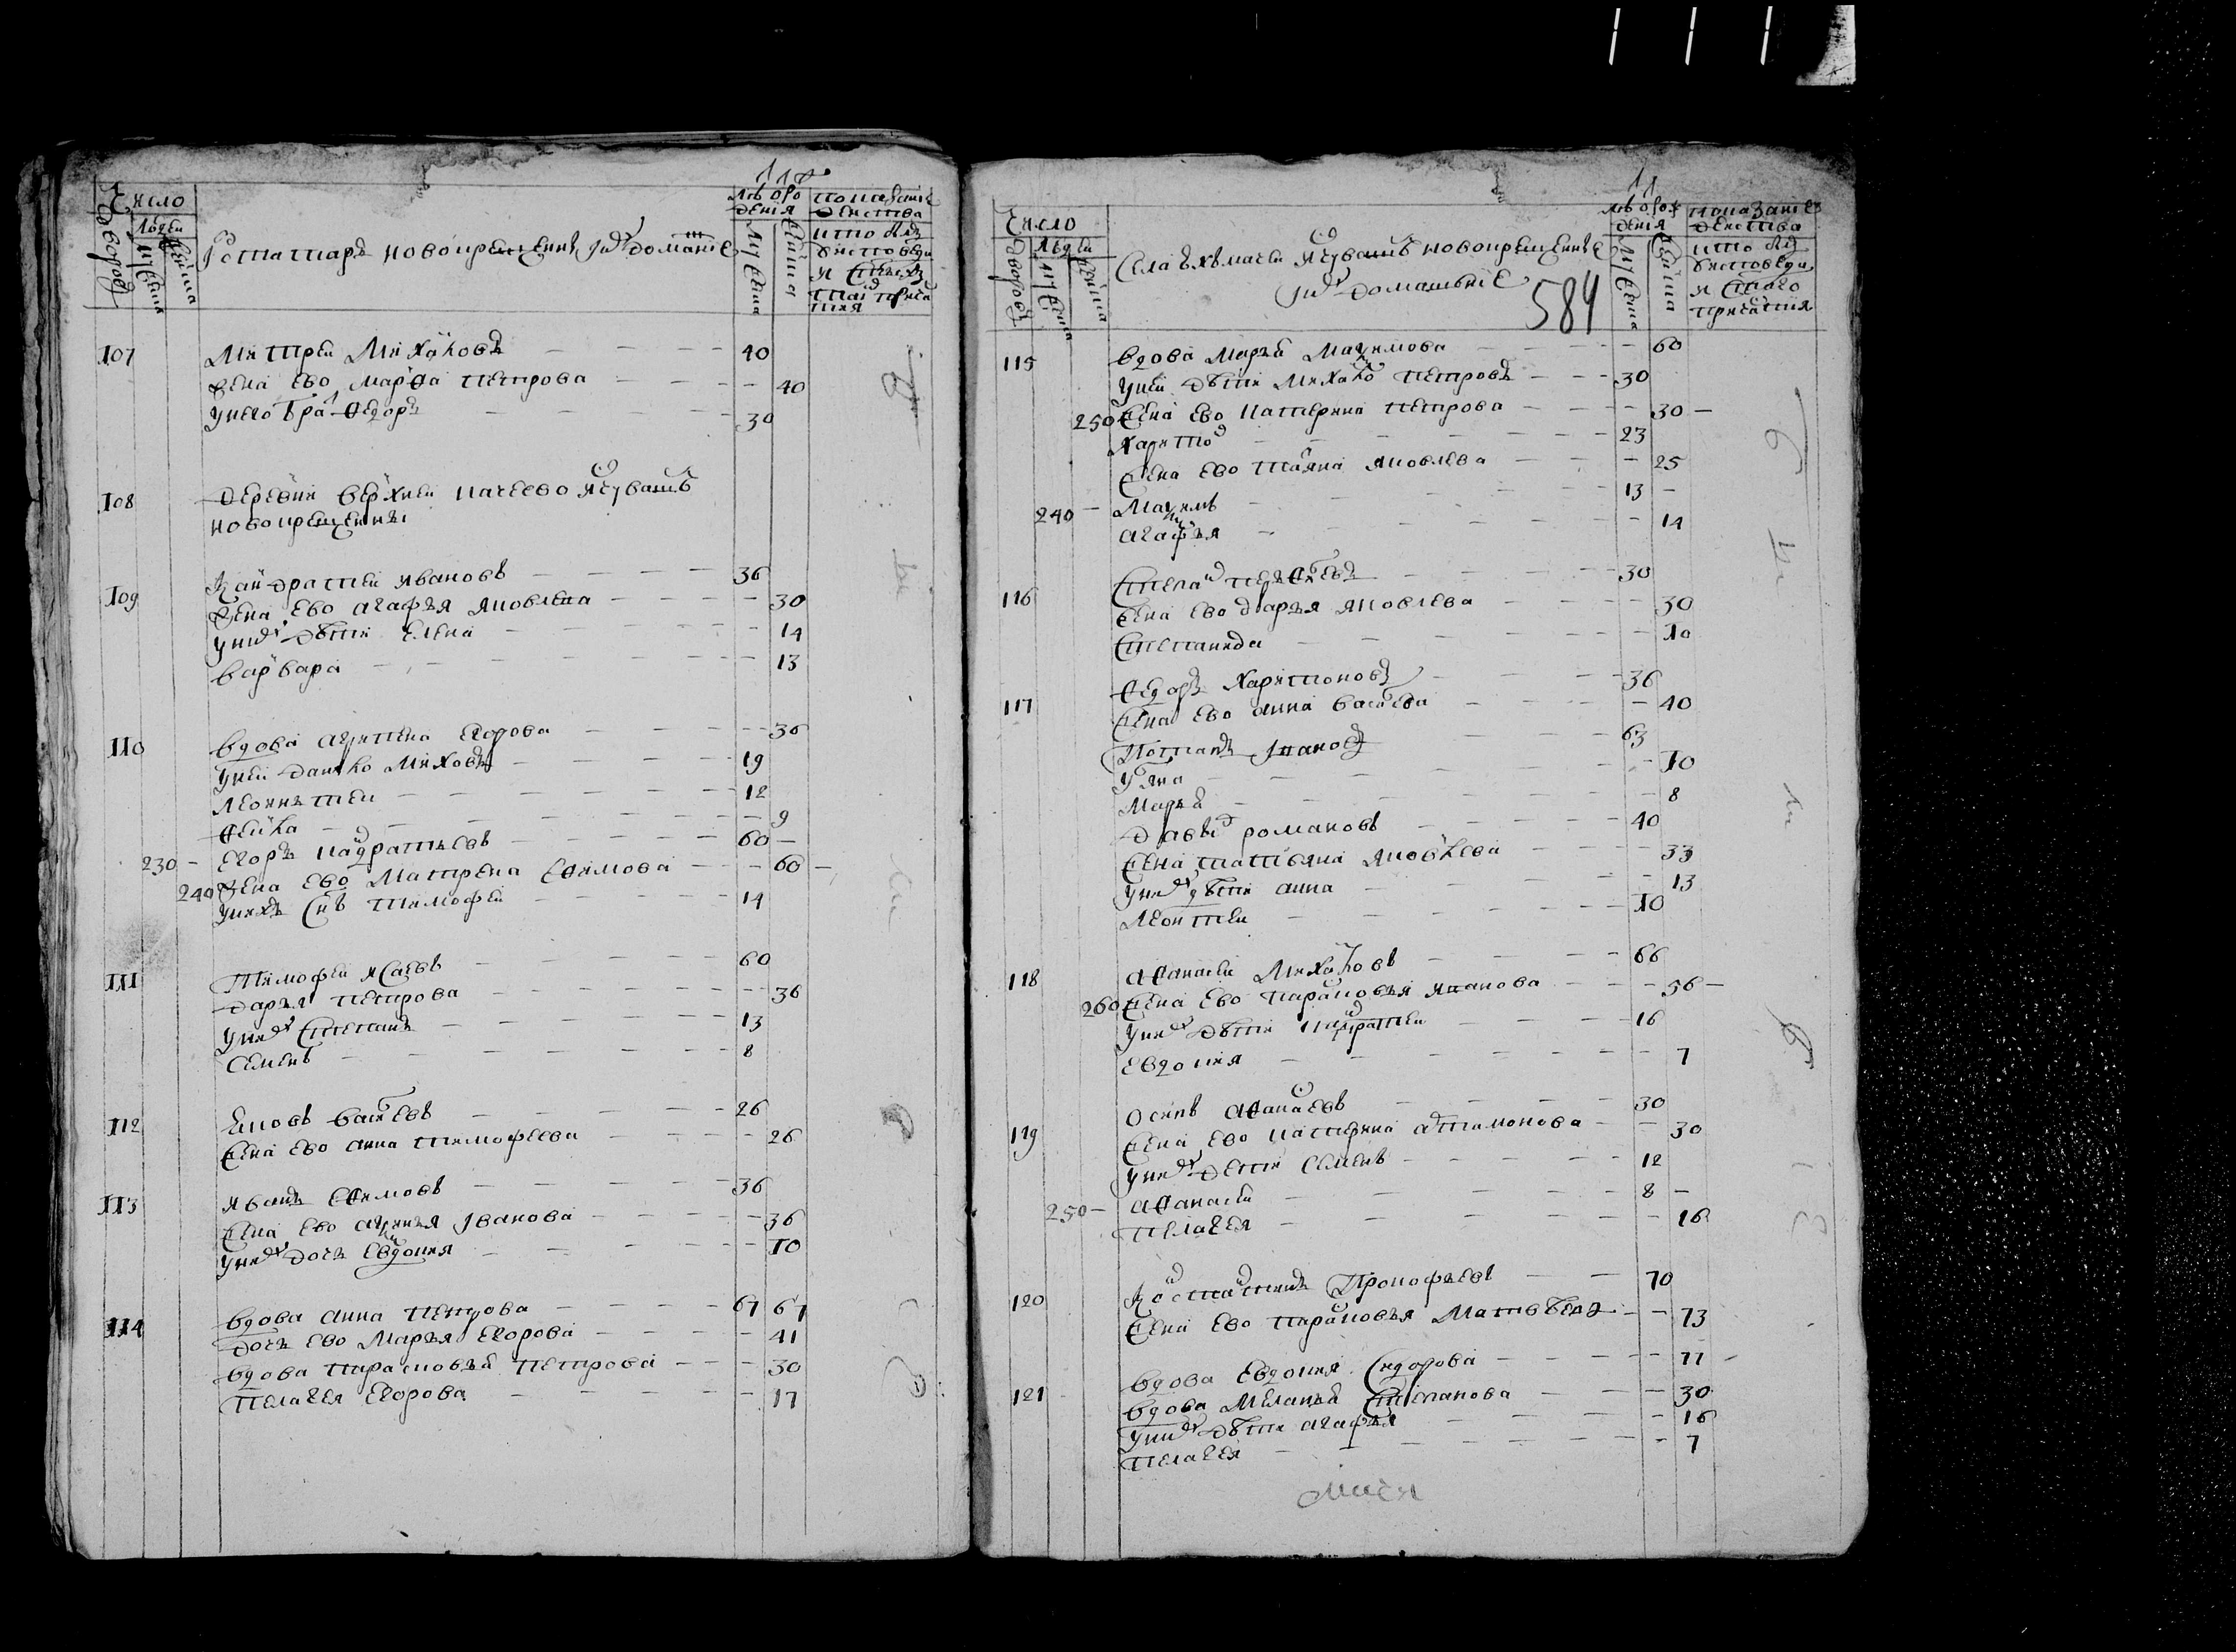 118
Число
дворовъ
людей
мужеска
женска
Ис татаръ новокрещенны ихъ домашние
лѣ о ро
ждения
мужеска
женска
показание
действа
кто былъ
у исповеди
и святыхъ
таинъ прича
стия
107 Митрей Михаиловъ 40
Жена ево Марфа Петрова 40
У него братъ Федоръ 30
108 Деревни Верхней Качеево ис чувашъ
новокрещенны
109 Кандратей Ивановъ 36
Жена ево Агафья Яковлева 30
У них дѣти Елена 14
Варвара 13
110 Вдова Агрипена Егорова 36
У ней Данило Михаиловъ 19
Леонтей 12
Фекла 9
230 Егоръ Кандратьевъ 60
240 Жена ево Матрена Ефимова 60
У нихъ снъ Тимофей 14
111 Тимофей Исаевъ 60
Дарья Петрова 36
У них Степанъ 13
Семенъ 8
112 Яковъ Василевъ 26
Жена ево Анна Тимофеева 26
113 Иванъ Ефимовъ 36
Жена ево Агрипия Иванова 36
У них дочь Евдокия 10
114 Вдова Анна Петрова 67 67
Дочь ево Марья Егорова 41
Вдова Парасковья Петрова 30
Пелагея Егорова 17
11
Число
дворовъ
людей
мужеска
женска
Села ис чувашъ новокрещеные
их домашние
584
лѣ о рож
дения
мужеска
женска
показание
действа
кто былъ
у исповеди
и святаго
причастия
115 Вдова Марья Максимова 60
У ней дѣти Михаило Петровъ 30
250 Жена ево Катерина Петрова 30
Харитон 23
Жена ево Татяна Яковлева 25
240 Максимъ 13
Агафья 14
116 Степан 30
Жена ево Дарья Яковлева 30
Степанида 10
117 Федоръ Харитоновъ 36
Жена ево Анна Василева 40
Потапъ Ивановъ 63
Уляна 10
Марья 8
Давыд Романовъ 40
Жена Татьяна Яковлева 33
У них дѣти Анна 13
Леонтей 10
118 Афанасей Михаиловъ 66
260 Жена ево Парасковья Иванова 56
У них дѣти Кандратей 16
Евдокия 7
119 Осипъ Афанасевъ 30
Жена ево Катерина Артамонова 30
У них дети Семенъ 12
250 Афанасей 8
Пелагея 16
120 Констянтинъ Прокофьевъ 70
Жена ево Парасковья Матвѣева 73
121 Вдова Евдокия Сидорова 77
Вдова Меланья Степанова 30
У них дѣти Агафья 16
Пелагея 7